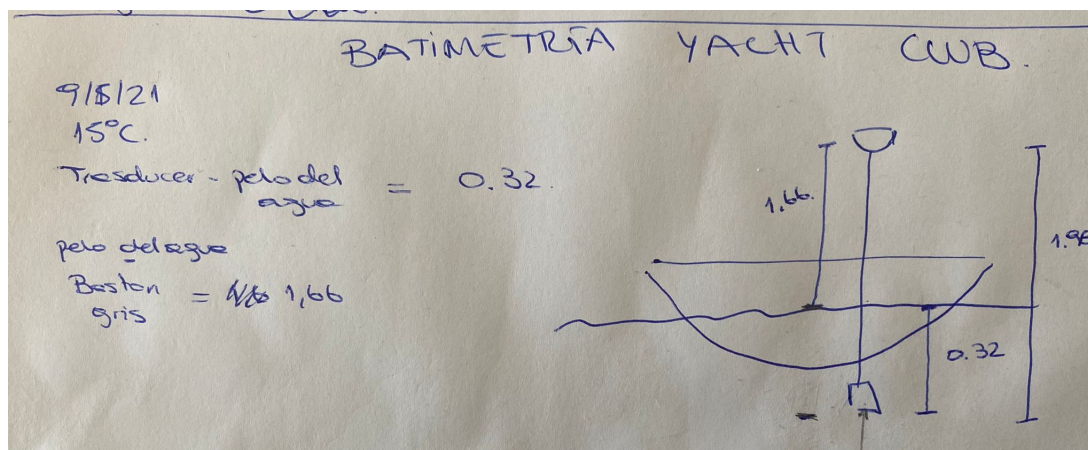 BATIMETRÍA YACHT CLUB.
9/8/21
15°C.
Trasducer - pelo del agua = 0.32.
pelo del agua
Baston gris = 1,66
1,66.
1.98
0.32